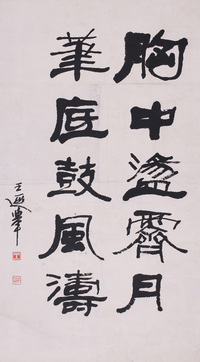 胸中盪霽月
筆底鼓風濤
王遐舉